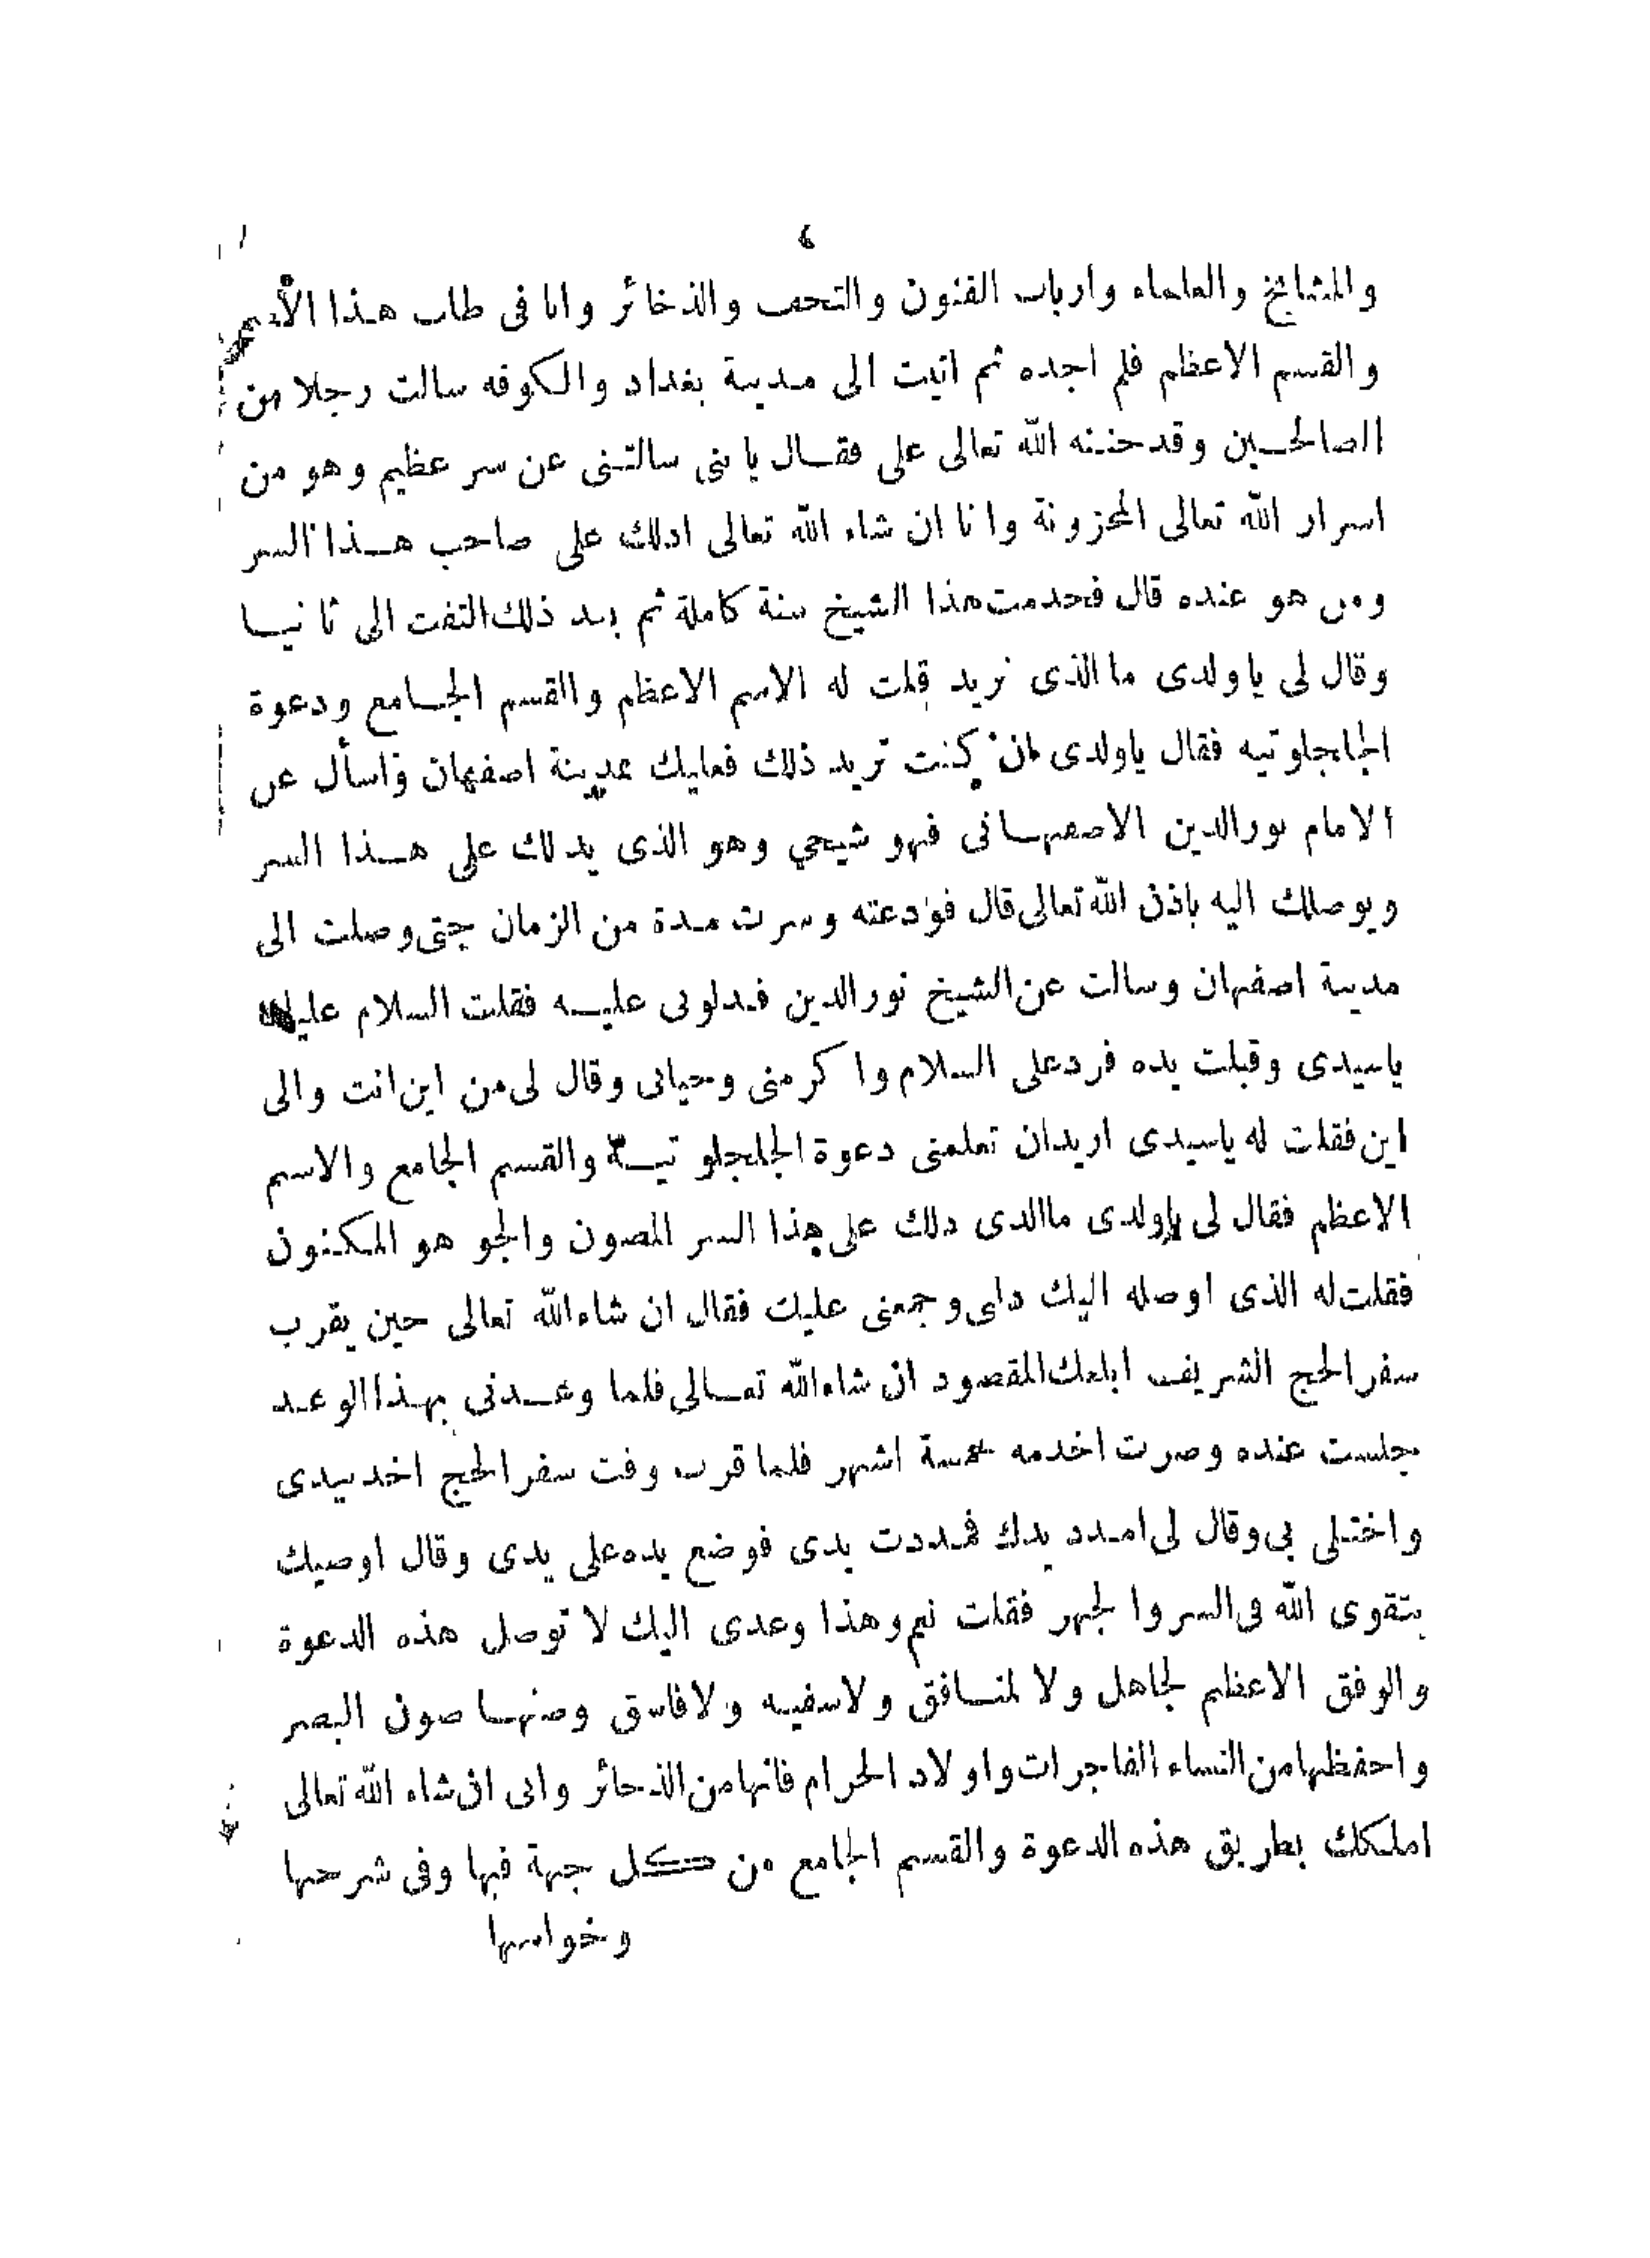 ٤
والمشايخ والعلماء وارباب الفنون والتحف والذخائر وانا فى طلب هذا الاسم
والقسم الاعظم فلم اجده ثم اتيت الى مدينة بغداد والكوفه سالت رجلا من
الصالحين وقد حننه الله تعالى على فقال يا بنى سالتنى عن سر عظيم وهو من
اسرار الله تعالى المخزونة وانا ان شاء الله تعالى ادلك على صاحب هذا السر
ومن هو عنده قال فخدمت هذا الشيخ سنة كاملة ثم بعد ذلك التفت الى ثانيا
وقال لى يا ولدى ما الذى تريد قلت له الاسم الاعظم والقسم الجامع ودعوة
الجلجلوتيه فقال ياولدى ان كنت تريد ذلك فعليك بمدينة اصفهان واسأل عن
الامام نورالدين الاصفهانى فهو شيخي وهو الذى يدلك على هذا السر
ويوصلك اليه باذن الله تعالى قال فودعته وسرت مدة من الزمان حتى وصلت الى
مدينة اصفهان وسالت عن الشيخ نورالدين فدلونى عليه فقلت السلام عليك
ياسيدى وقبلت يده فرد على السلام واكرمنى وحيانى وقال لى من اين انت والى
اين فقلت له ياسيدى اريد ان تعلمنى دعوة الجلجلوتية والقسم الجامع والاسم
الاعظم فقال لى ياولدى ماالذى دلك على هذا السر المصون والجوهر المكنون
فقلت له الذى اوصله اليك دلنى وجمعنى عليك فقال ان شاء الله تعالى حين يقرب
سفر الحج الشريف ابلغك المقصود ان شاء الله تعالى فلما وعدنى بهذا الوعد
جلست عنده وصرت اخدمه خمسة اشهر فلما قرب وقت سفر الحج اخذ بيدى
واختلى بى وقال لى امدد يدك فمددت يدى فوضع يده على يدى وقال اوصيك
بتقوى الله فى السر والجهر فقلت نعم وهذا وعدى اليك لا توصل هذه الدعوة
والوفق الاعظم لجاهل ولا لمنافق ولا سفيه ولا فاسق وصنها صون البصر
واحفظها من النساء الفاجرات واولاد الحرام فانها من الذخائر وانى ان شاء الله تعالى
املكك بطريق هذه الدعوة والقسم الجامع من كل جهة فيها وفى شرحها
وخواصها